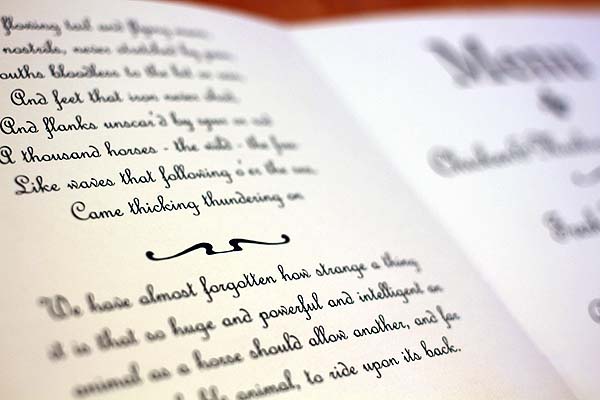 flowing tail and flying mane
nostrils, never stretched by pain
ouths bloodless to the bit or rein
And feet that iron never shod
And flanks unscar'd by spur or rod
A thousand horses - the wild - the free
Like waves that following o'er the sea
Came thicking thundering on
We have almost forgotten how strange a thing
it is that so huge and powerful and intelligent an
animal as a horse should allow another, and far
animal, to ride upon its back.
Menu